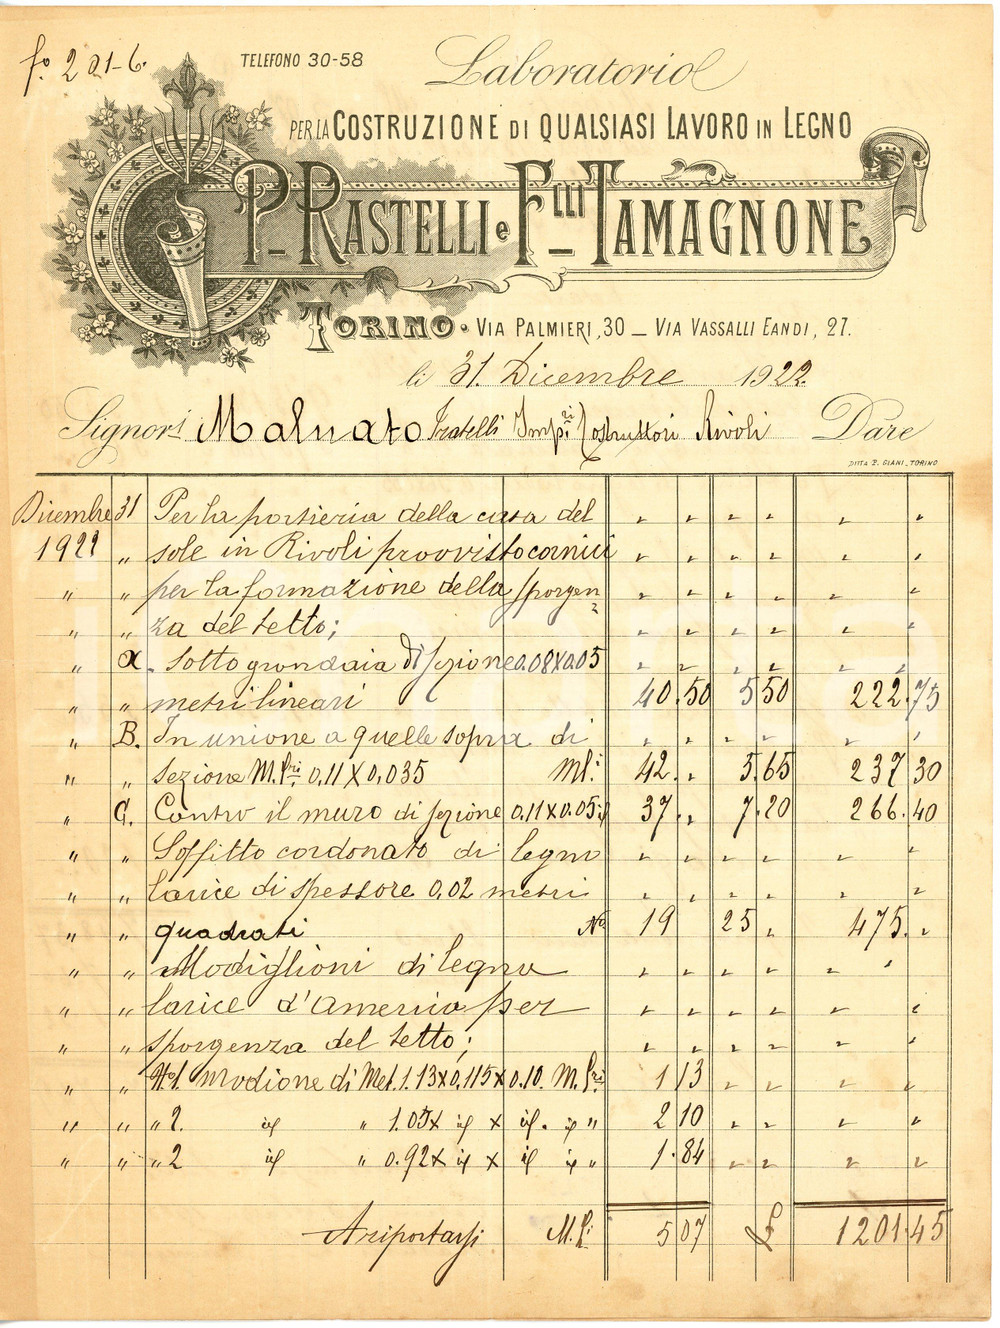 fo. 201-6.
TELEFONO 30-58
Laboratorio
PER LA COSTRUZIONE DI QUALSIASI LAVORO IN LEGNO
P. RASTELLI e Flli TAMAGNONE
TORINO · VIA PALMIERI, 30 _ VIA VASSALLI EANDI, 27.
li 31. Dicembre 1922
Signori Maluato Fratelli Impri Costruttori Rivoli Dare
DITTA P. GIANI _ TORINO
Dicembre 31 Per la portieria della casa del " " " " " "
1922 " sole in Rivoli provvisto cornici " " " " " "
" " per la formazione della sporgen " " " " " "
" " za del tetto; " " " " " "
" A. Sotto grondaia di sezione 0.08X0.05 " " " " " "
" " metri lineari 40.50 5 50 222.75
" B. In unione a quelle sopra di " " " " " "
" " sezione M.tri 0,11X0,035 Ml.i 42. " 5.65 237 30
" C. Contro il muro di sezione 0.11X0.05 37. " 7.20 266.40
" " Soffitto cordonato di legno " " " " " "
" " larice di spessore 0,02 metri " " " " " "
" " quadrati No 19 25 " 475. "
" " Modiglioni di legno " " " " " "
" " larice d'America per " " " " " "
" " sporgenza del tetto; " " " " " "
" " No1. Modione di Met. 1.13X0,115X0.10. M. 1 13 " " " "
" " " 2. id " 1.05X id X id. id " 2 10 " " " "
" " " 2 id " 0.92X id X id id " 1.84 " " " "
A riportarsi M.li 5 07 £ 1201.45